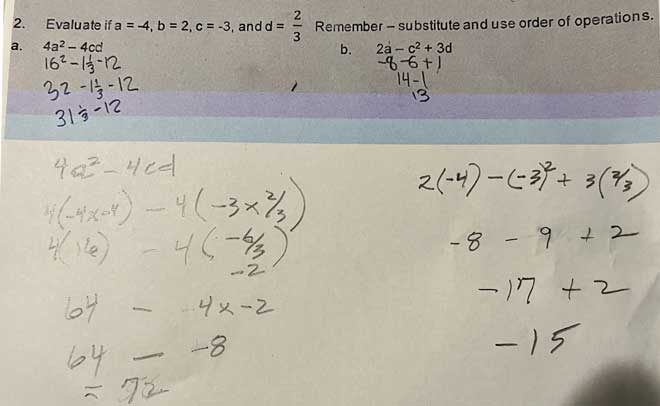 2. Evaluate if a = -4, b = 2, c = -3, and d = 2/3 Remember – substitute and use order of operations.
a. 4a² – 4cd
16² - 1 1/3 - 12
32 - 1 1/3 - 12
31 1/3 - 12
b. 2a – c² + 3d
-8 - 6 + 1
14 - 1
13
4a² - 4cd
4(-4x-4) - 4(-3 x 2/3)
4(16) - 4(-6/3)
-2
64 - 4x-2
64 - -8
= 72
2(-4) - (-3)² + 3(2/3)
-8 - 9 + 2
-17 + 2
-15